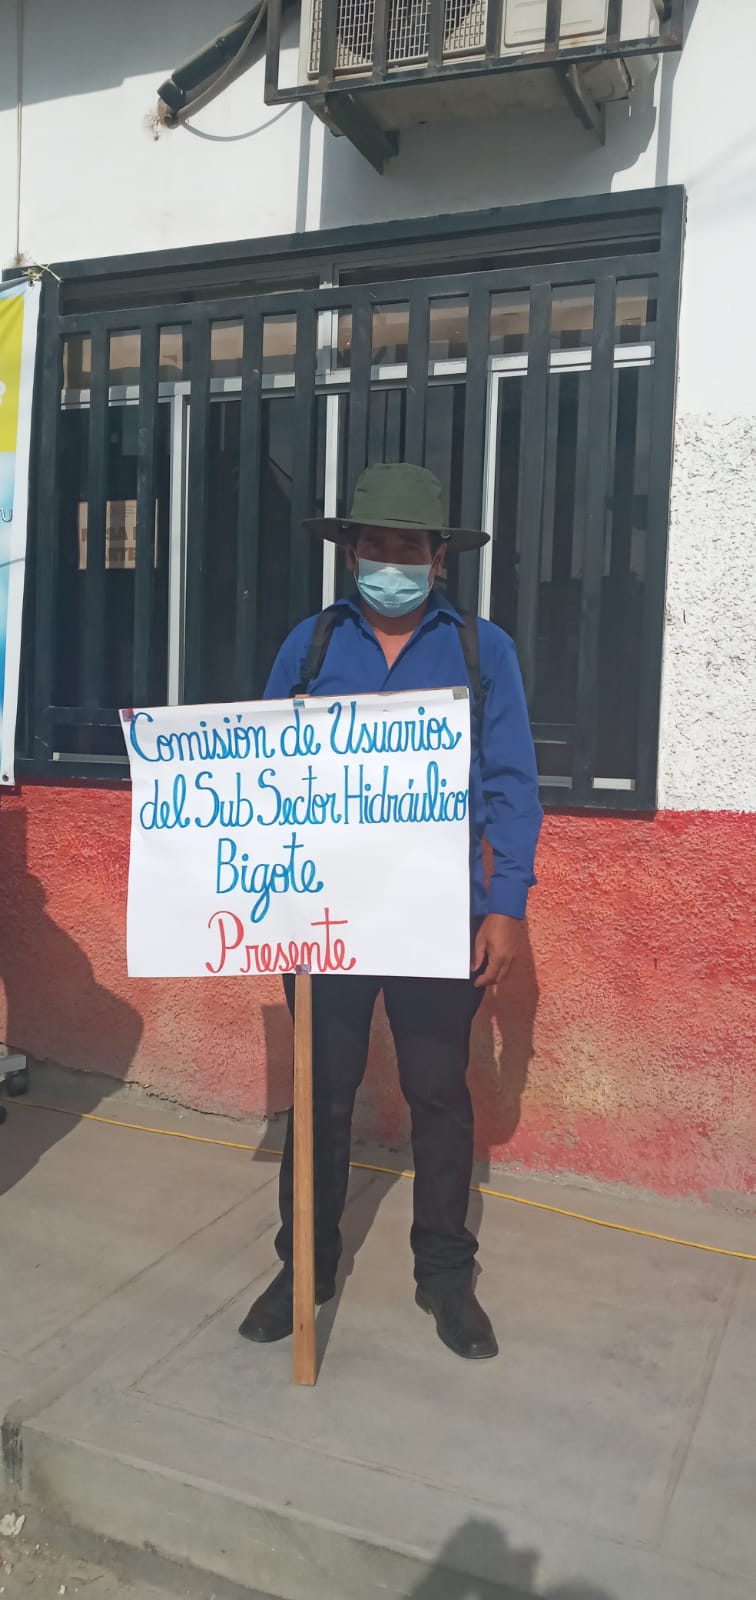 Comisión de Usuarios
del Sub Sector Hidráulico
Bigote
Presente